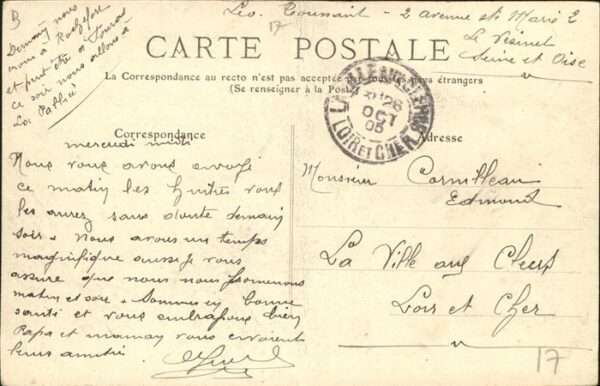 B
Demain nous
irons à Rochefort
et peut être à Fouras
ce soir nous allons à
La Pallice
Leo. Toussaint - 2 avenue Ste Marie E
17
Le Vésinet
Seine et Oise
CARTE POSTALE
La Correspondance au recto n'est pas acceptée par tous les pays étrangers
(Se renseigner à la Poste)
LA VILLE-AUX-CLERCS
26
OCT
05
LOIR ET CHER
Correspondance
Adresse
mercredi midi
Nous vous avons envoyé
ce matin les huitres vous
les aurez sans doute demain
soir. Nous avons un temps
magnifique aussi je vous
assure que nous nous promenons
matin et soir. Sommes en bonne
santé et vous embrassons bien
Papa et maman vous envoient
leurs amitiés
Monsieur Cornilleau
Edmond
La Ville aux Clercs
Loir et Cher
17